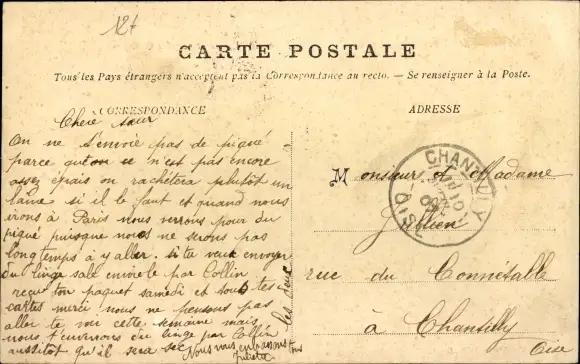 12f
CARTE POSTALE
Tous les Pays étrangers n'acceptent pas la Correspondance au recto. — Se renseigner à la Poste.
CORRESPONDANCE
ADRESSE
Chère sœur
On ne t'envoie pas de piqué
parce qu'on ne n'est pas encore
assez épais on rachètera plutôt un
laine si il le faut et quand nous
irons à Paris nous verrons pour du
piqué puisque nous ne serons pas
longtemps à y aller. si tu veux envoyer
du linge sale envoie le par Collin
reçu ton paquet samedi et tous tes
cartes merci nous ne pensons pas
aller te voir cette semaine mais
nous t'enverrons du linge par Collin
aussitôt qu'il sera sec
Nous vous embrassons tous
les deux
Juliette
Monsieur et Madame
Jullien
rue du Connétable
à Chantilly
Oise
CHANTILLY
OISE